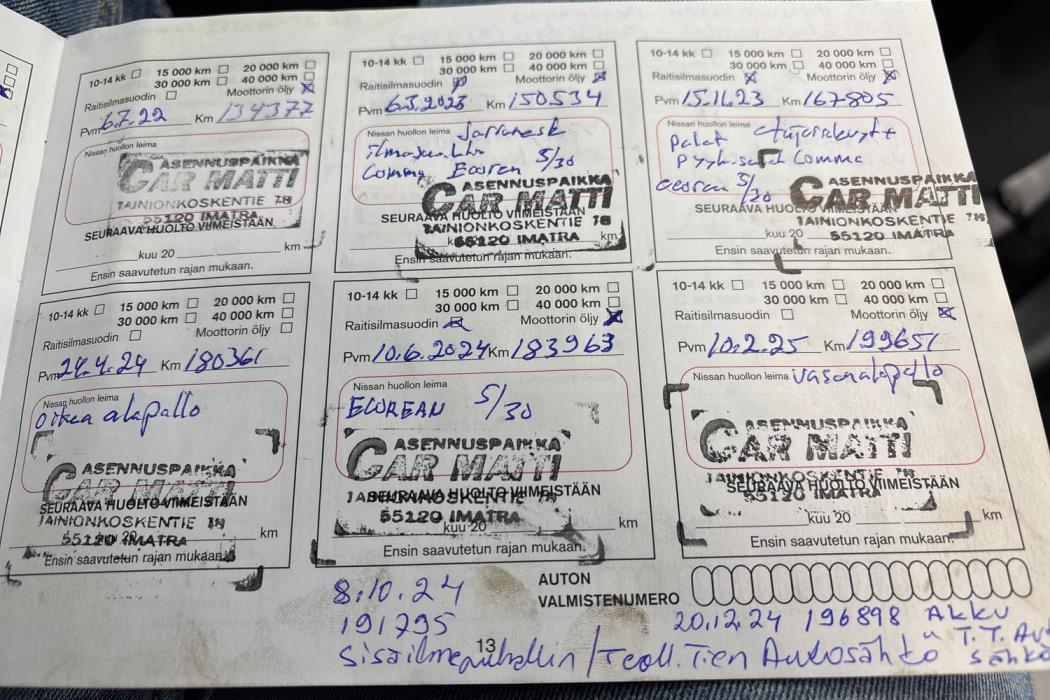 10-14 kk 15 000 km 20 000 km
30 000 km 40 000 km
Raitisilmasuodin Moottorin öljy
Pvm 6.7.22 Km 134377
Nissan huollon leima
ASENNUSPAIKKA
CAR MATTI
TAINIONKOSKENTIE 78
55120 IMATRA
SEURAAVA HUOLTO VIIMEISTÄÄN
kuu 20 km
Ensin saavutetun rajan mukaan.
10-14 kk 15 000 km 20 000 km
30 000 km 40 000 km
Raitisilmasuodin Moottorin öljy
Pvm 6.3.2023 Km 150534
Nissan huollon leima Jarrunesk
Comma Ecoren 5/30
ASENNUSPAIKKA
CAR MATTI
SEURAAVA HUOLTO VIIMEISTÄÄN
TAINIONKOSKENTIE 78
55120 IMATRA km
Ensin saavutetun rajan mukaan.
10-14 kk 15 000 km 20 000 km
30 000 km 40 000 km
Raitisilmasuodin Moottorin öljy
Pvm 15.11.23 Km 167805
Nissan huollon leima
Comma
5/30
ASENNUSPAIKKA
CAR MATTI
SEURAAVA HUOLTO VIIMEISTÄÄN
TAINIONKOSKENTIE 78
kuu 20 55120 IMATRA
Ensin saavutetun rajan mukaan.
10-14 kk 15 000 km 20 000 km
30 000 km 40 000 km
Raitisilmasuodin Moottorin öljy
Pvm 24.4.24 Km 180361
Nissan huollon leima
oikea alapallo
ASENNUSPAIKKA
CAR MATTI
SEURAAVA HUOLTO VIIMEISTÄÄN
TAINIONKOSKENTIE 78
55120 IMATRA km
Ensin saavutetun rajan mukaan.
10-14 kk 15 000 km 20 000 km
30 000 km 40 000 km
Raitisilmasuodin Moottorin öljy
Pvm 10.6.2024 Km 183963
Nissan huollon leima
ECOREAN 5/30
ASENNUSPAIKKA
CAR MATTI
SEURAAVA HUOLTO VIIMEISTÄÄN
TAINIONKOSKENTIE 78
55120 IMATRA
kuu 20 km
Ensin saavutetun rajan mukaan.
10-14 kk 15 000 km 20 000 km
30 000 km 40 000 km
Raitisilmasuodin Moottorin öljy
Pvm 10.2.25 Km 199651
Nissan huollon leima vasenalapallo
ASENNUSPAIKKA
CAR MATTI
TAINIONKOSKENTIE 78
SEURAAVA HUOLTO VIIMEISTÄÄN
55120 IMATRA
kuu 20 km
Ensin saavutetun rajan mukaan.
8.10.24
191795
Sisäilmapuhallin / Teoll.Tien Autosähkö
AUTON
VALMISTENUMERO
20.12.24 196898 Akku
" T.T. Auto
sähkö
13